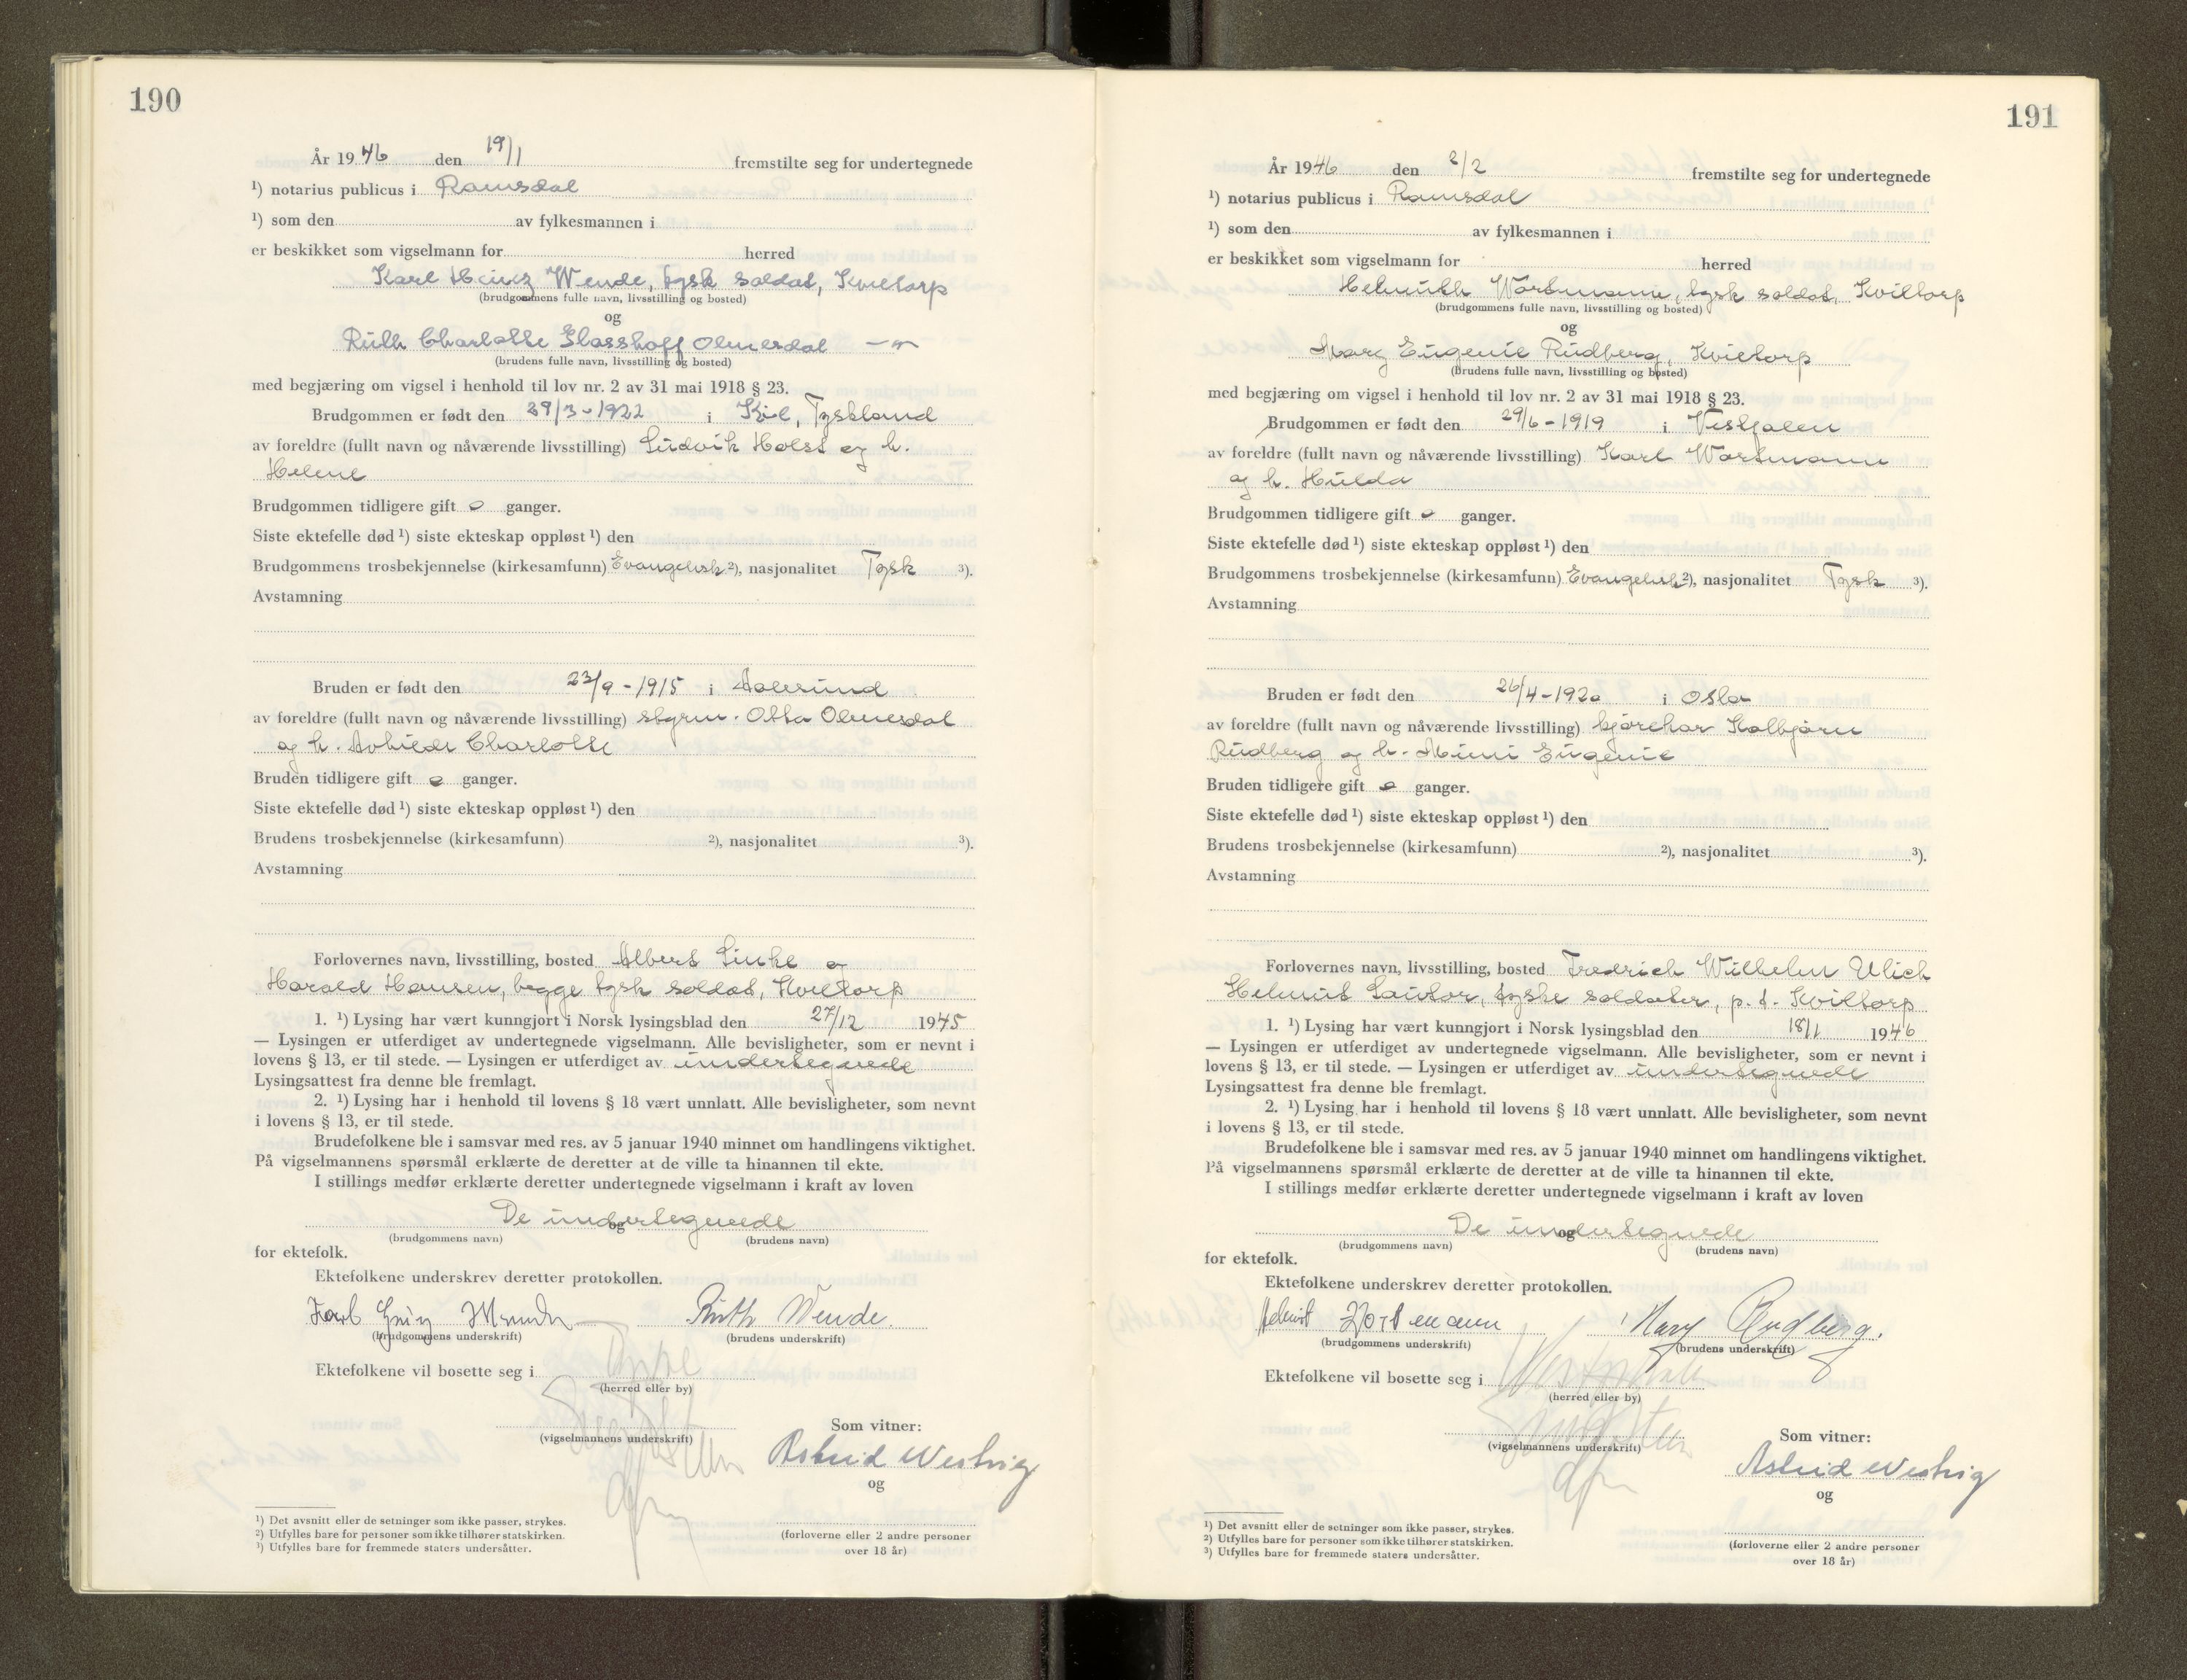 190
År 1946 den 19/1 fremstilte seg for undertegnede
¹) notarius publicus i Romsdal
¹) som den av fylkesmannen i
er beskikket som vigselmann for herred
Karl Heinz Wende, tysk soldat, Kvietorp
(brudgommens fulle navn, livsstilling og bosted)
og
Ruth Charlotte Glasshoff Olmesdal —"—
(brudens fulle navn, livsstilling og bosted)
med begjæring om vigsel i henhold til lov nr. 2 av 31 mai 1918 § 23.
Brudgommen er født den 29/3-1922 i Kiel, Tyskland
av foreldre (fullt navn og nåværende livsstilling) Ludvik Holst og h.
Helene
Brudgommen tidligere gift 0 ganger.
Siste ektefelle død ¹) siste ekteskap oppløst ¹) den
Brudgommens trosbekjennelse (kirkesamfunn) Evangelisk ²), nasjonalitet Tysk ³).
Avstamning
Bruden er født den 23/9-1915 i Aalesund
av foreldre (fullt navn og nåværende livsstilling) styrm. Otto Olmesdal
og h. Charlotte
Bruden tidligere gift 0 ganger.
Siste ektefelle død ¹) siste ekteskap oppløst ¹) den
Brudens trosbekjennelse (kirkesamfunn) ²), nasjonalitet ³).
Avstamning
Forlovernes navn, livsstilling, bosted Albert Linke og
Harald Hansen, begge tysk soldat, Kvietorp
1. ¹) Lysing har vært kunngjort i Norsk lysingsblad den 27/12 1945
— Lysingen er utferdiget av undertegnede vigselmann. Alle bevisligheter, som er nevnt i
lovens § 13, er til stede. — Lysingen er utferdiget av undertegnede
Lysingsattest fra denne ble fremlagt.
2. ¹) Lysing har i henhold til lovens § 18 vært unnlatt. Alle bevisligheter, som nevnt
i lovens § 13, er til stede.
Brudefolkene ble i samsvar med res. av 5 januar 1940 minnet om handlingens viktighet.
På vigselmannens spørsmål erklærte de deretter at de ville ta hinannen til ekte.
I stillings medfør erklærte deretter undertegnede vigselmann i kraft av loven
De undertegnede
og
(brudgommens navn) (brudens navn)
for ektefolk.
Ektefolkene underskrev deretter protokollen.
Karl Heinz Wende Ruth Wende.
(brudgommens underskrift) (brudens underskrift)
Ektefolkene vil bosette seg i
(herred eller by)
(vigselmannens underskrift)
Som vitner:
Astrid Westvig
og
(forloverne eller 2 andre personer
over 18 år)
¹) Det avsnitt eller de setninger som ikke passer, strykes.
²) Utfylles bare for personer som ikke tilhører statskirken.
³) Utfylles bare for fremmede staters undersåtter.
191
År 1946 den 2/2 fremstilte seg for undertegnede
¹) notarius publicus i Romsdal
¹) som den av fylkesmannen i
er beskikket som vigselmann for herred
Helmuth Wortmann, tysk soldat, Kviltorp
(brudgommens fulle navn, livsstilling og bosted)
og
Mary Eugenie Rudberg, Kvietorp
(brudens fulle navn, livsstilling og bosted)
med begjæring om vigsel i henhold til lov nr. 2 av 31 mai 1918 § 23.
Brudgommen er født den 29/6-1919 i Vestfalen
av foreldre (fullt navn og nåværende livsstilling) Karl Wortmann
og h. Hulda
Brudgommen tidligere gift 0 ganger.
Siste ektefelle død ¹) siste ekteskap oppløst ¹) den
Brudgommens trosbekjennelse (kirkesamfunn) Evangelisk ²), nasjonalitet Tysk ³).
Avstamning
Bruden er født den 26/4-1920 i Oslo
av foreldre (fullt navn og nåværende livsstilling) Kolbjørn
Rudberg og h. Mimi Eugenie
Bruden tidligere gift 0 ganger.
Siste ektefelle død ¹) siste ekteskap oppløst ¹) den
Brudens trosbekjennelse (kirkesamfunn) ²), nasjonalitet ³).
Avstamning
Forlovernes navn, livsstilling, bosted Fredrich Wilhelm Ulich
Helmut Sautor, tyske soldater, p.t. Kviltorp
1. ¹) Lysing har vært kunngjort i Norsk lysingsblad den 18/1 1946
— Lysingen er utferdiget av undertegnede vigselmann. Alle bevisligheter, som er nevnt i
lovens § 13, er til stede. — Lysingen er utferdiget av undertegnede
Lysingsattest fra denne ble fremlagt.
2. ¹) Lysing har i henhold til lovens § 18 vært unnlatt. Alle bevisligheter, som nevnt
i lovens § 13, er til stede.
Brudefolkene ble i samsvar med res. av 5 januar 1940 minnet om handlingens viktighet.
På vigselmannens spørsmål erklærte de deretter at de ville ta hinannen til ekte.
I stillings medfør erklærte deretter undertegnede vigselmann i kraft av loven
De undertegnede
og
(brudgommens navn) (brudens navn)
for ektefolk.
Ektefolkene underskrev deretter protokollen.
Helmut Wortmann Mary Rudberg.
(brudgommens underskrift) (brudens underskrift)
Ektefolkene vil bosette seg i Westphalen
(herred eller by)
(vigselmannens underskrift)
Som vitner:
Astrid Westvig
og
(forloverne eller 2 andre personer
over 18 år)
¹) Det avsnitt eller de setninger som ikke passer, strykes.
²) Utfylles bare for personer som ikke tilhører statskirken.
³) Utfylles bare for fremmede staters undersåtter.